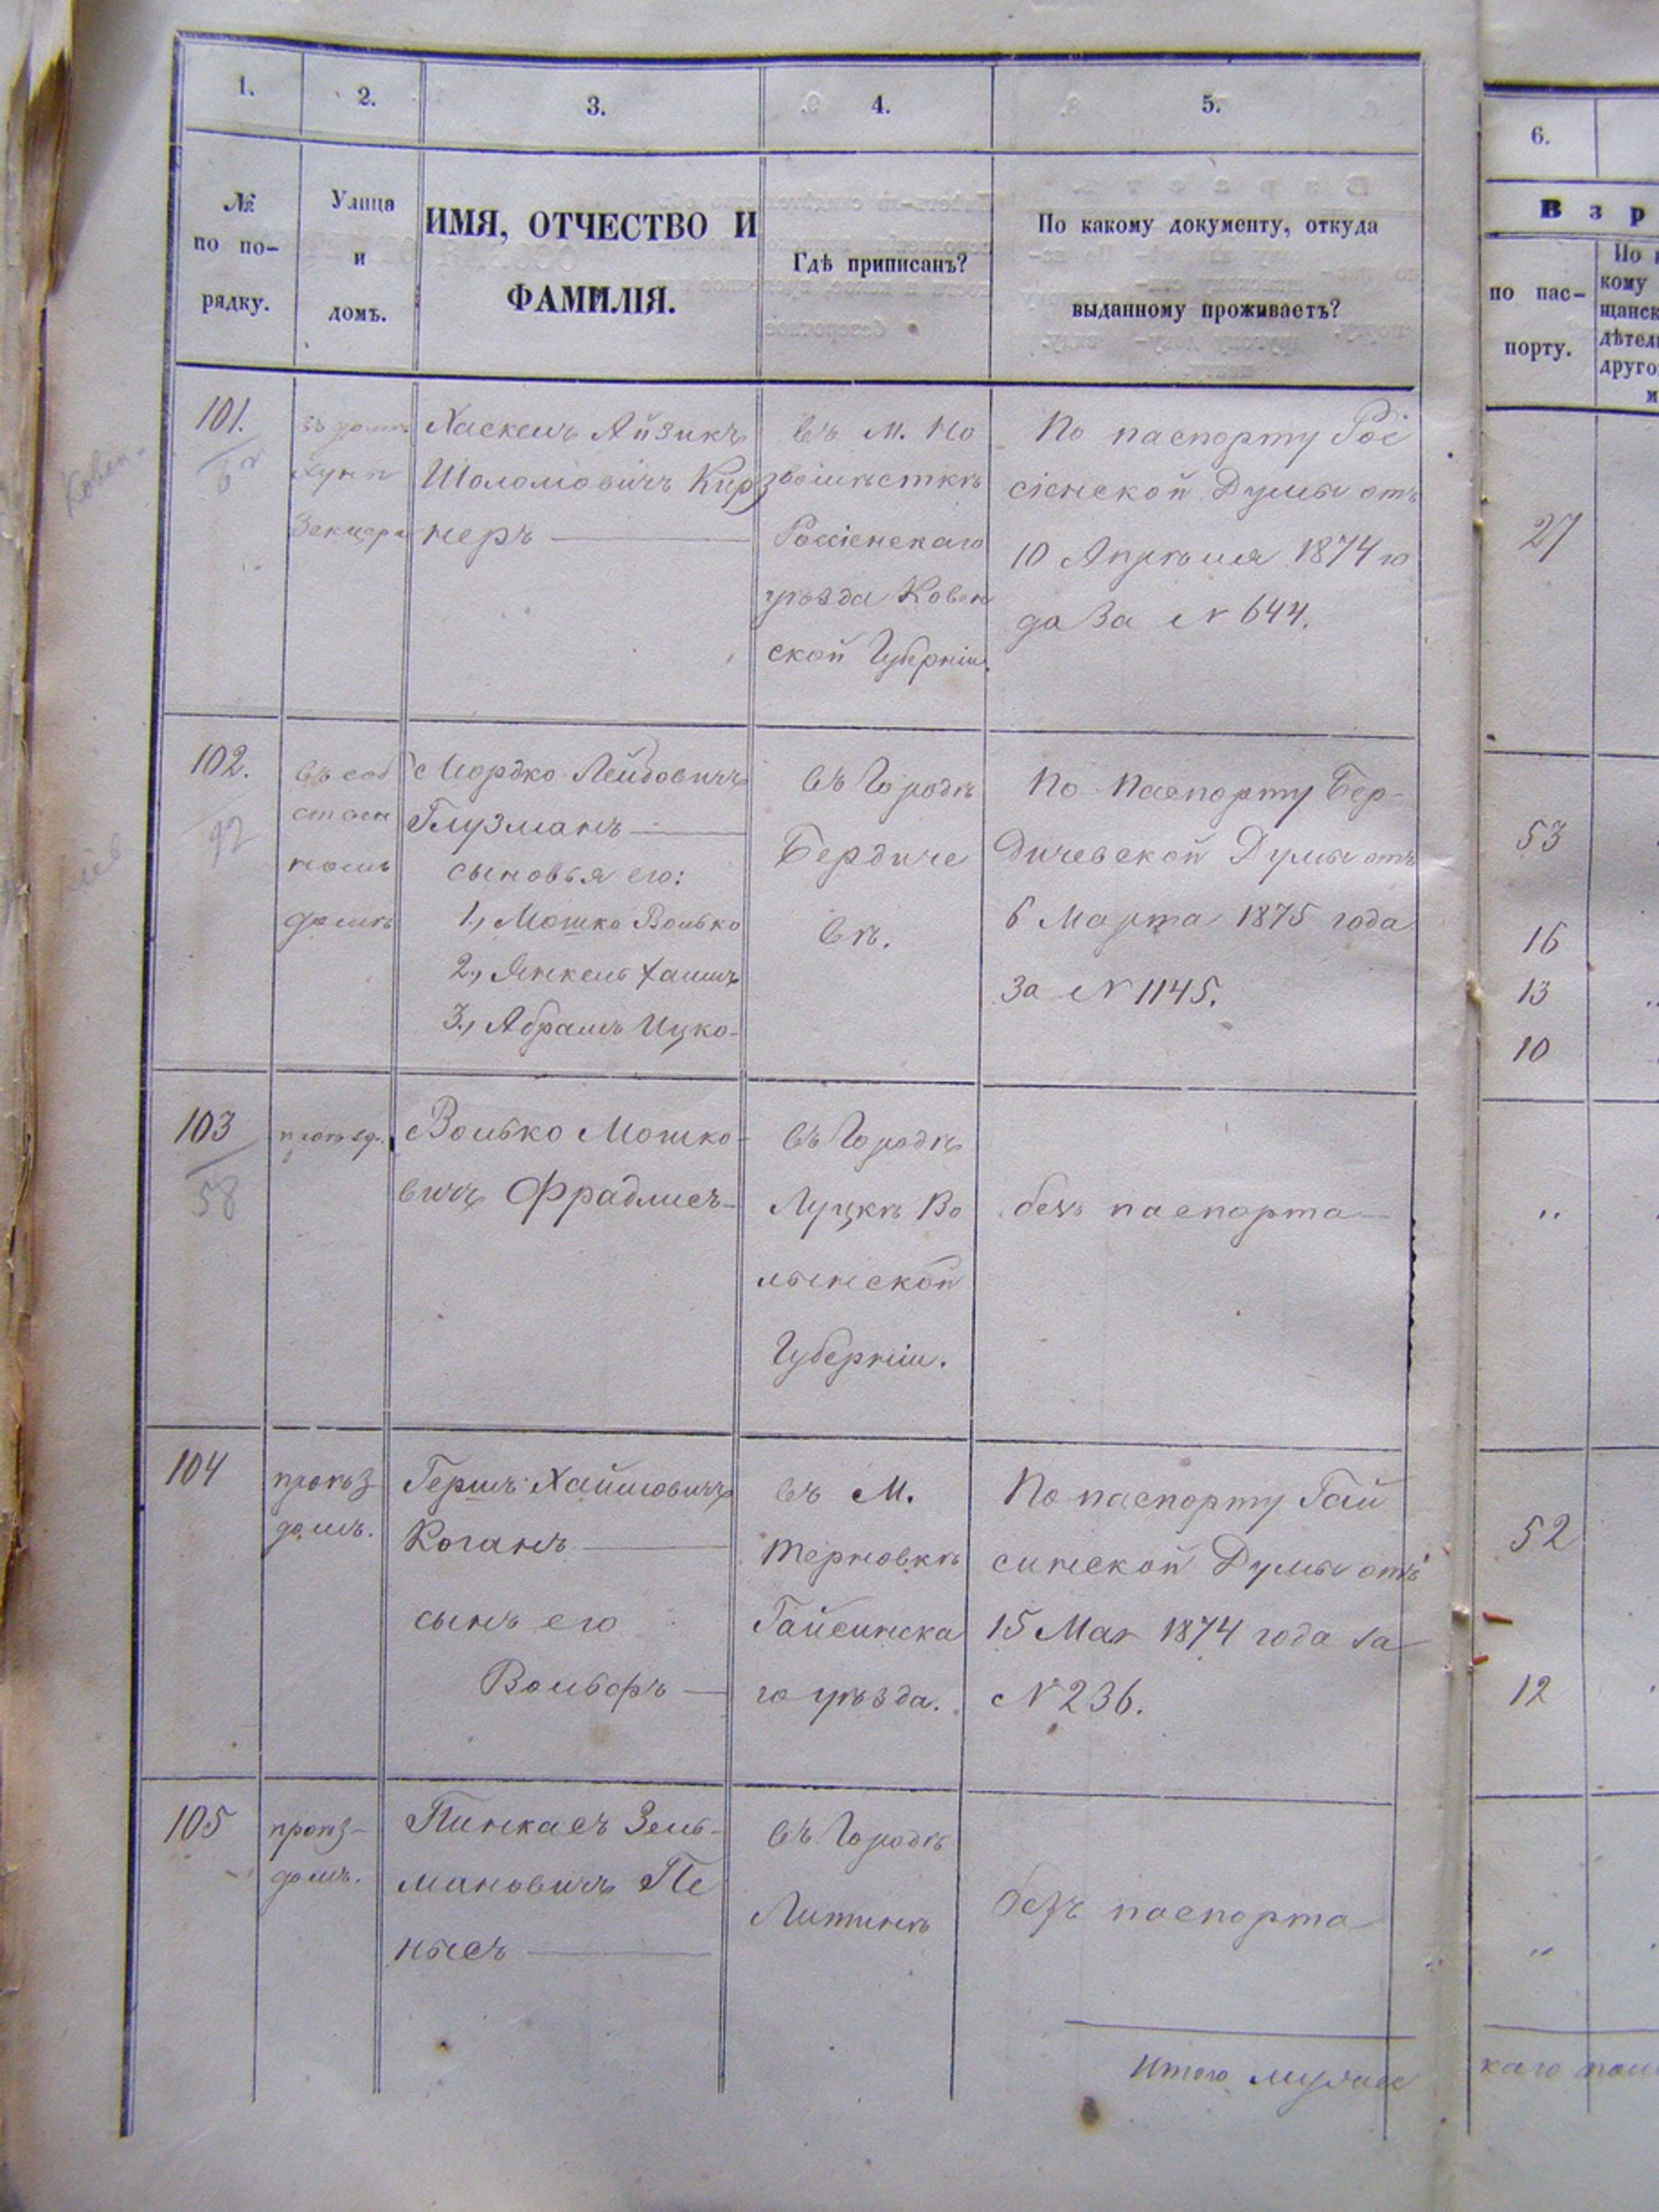 1.
2.
3.
4.
5.
6.
№
по по-
рядку.
Улица
и
домъ.
ИМЯ, ОТЧЕСТВО И
ФАМИЛІЯ.
Гдѣ приписанъ?
По какому документу, откуда
выданному проживаетъ?
Взр
по пас-
порту.
кому
щанск
дѣтел
друго
101.
Хаскель Айзикъ
Шоломовичъ Кирз
неръ
въ м. Но
вомѣсткѣ
Россіенскаго
уѣзда Ковен
ской Губерніи.
По паспорту Рос
сіенской Думы отъ
10 Апрѣля 1874 го
да За № 644.
27
102.
92
въ соб
ствен
номъ
домѣ
Мордко Лейбовичъ
Глузманъ
сыновья его:
1., Мошко Волько
2., Янкель Хаимъ
3., Абрамъ Ицко-
въ Городѣ
Бердиче
вѣ.
По Паспорту Бер-
дичевской Думы отъ
6 Марта 1875 года
За № 1145.
53
16
13
10
103
58
Волько Мошко-
вичъ Фрадлисъ-
въ Городѣ
Луцкѣ Во
лынской
Губерніи.
безъ паспорта
"
104
проѣз
домъ.
Гершъ Хаимовичъ
Коганъ
сынъ его
Вольфъ
въ М.
Терновкѣ
Гайсинска
го уѣзда.
По паспорту Гай
синской Думы отъ
15 Мая 1874 года за
№ 236.
52
12
105
проѣз-
домъ.
Пинкасъ Зель-
мановичъ Пе
нысъ
въ Городѣ
Литинѣ
безъ паспорта
"
Итого мужес
каго пол